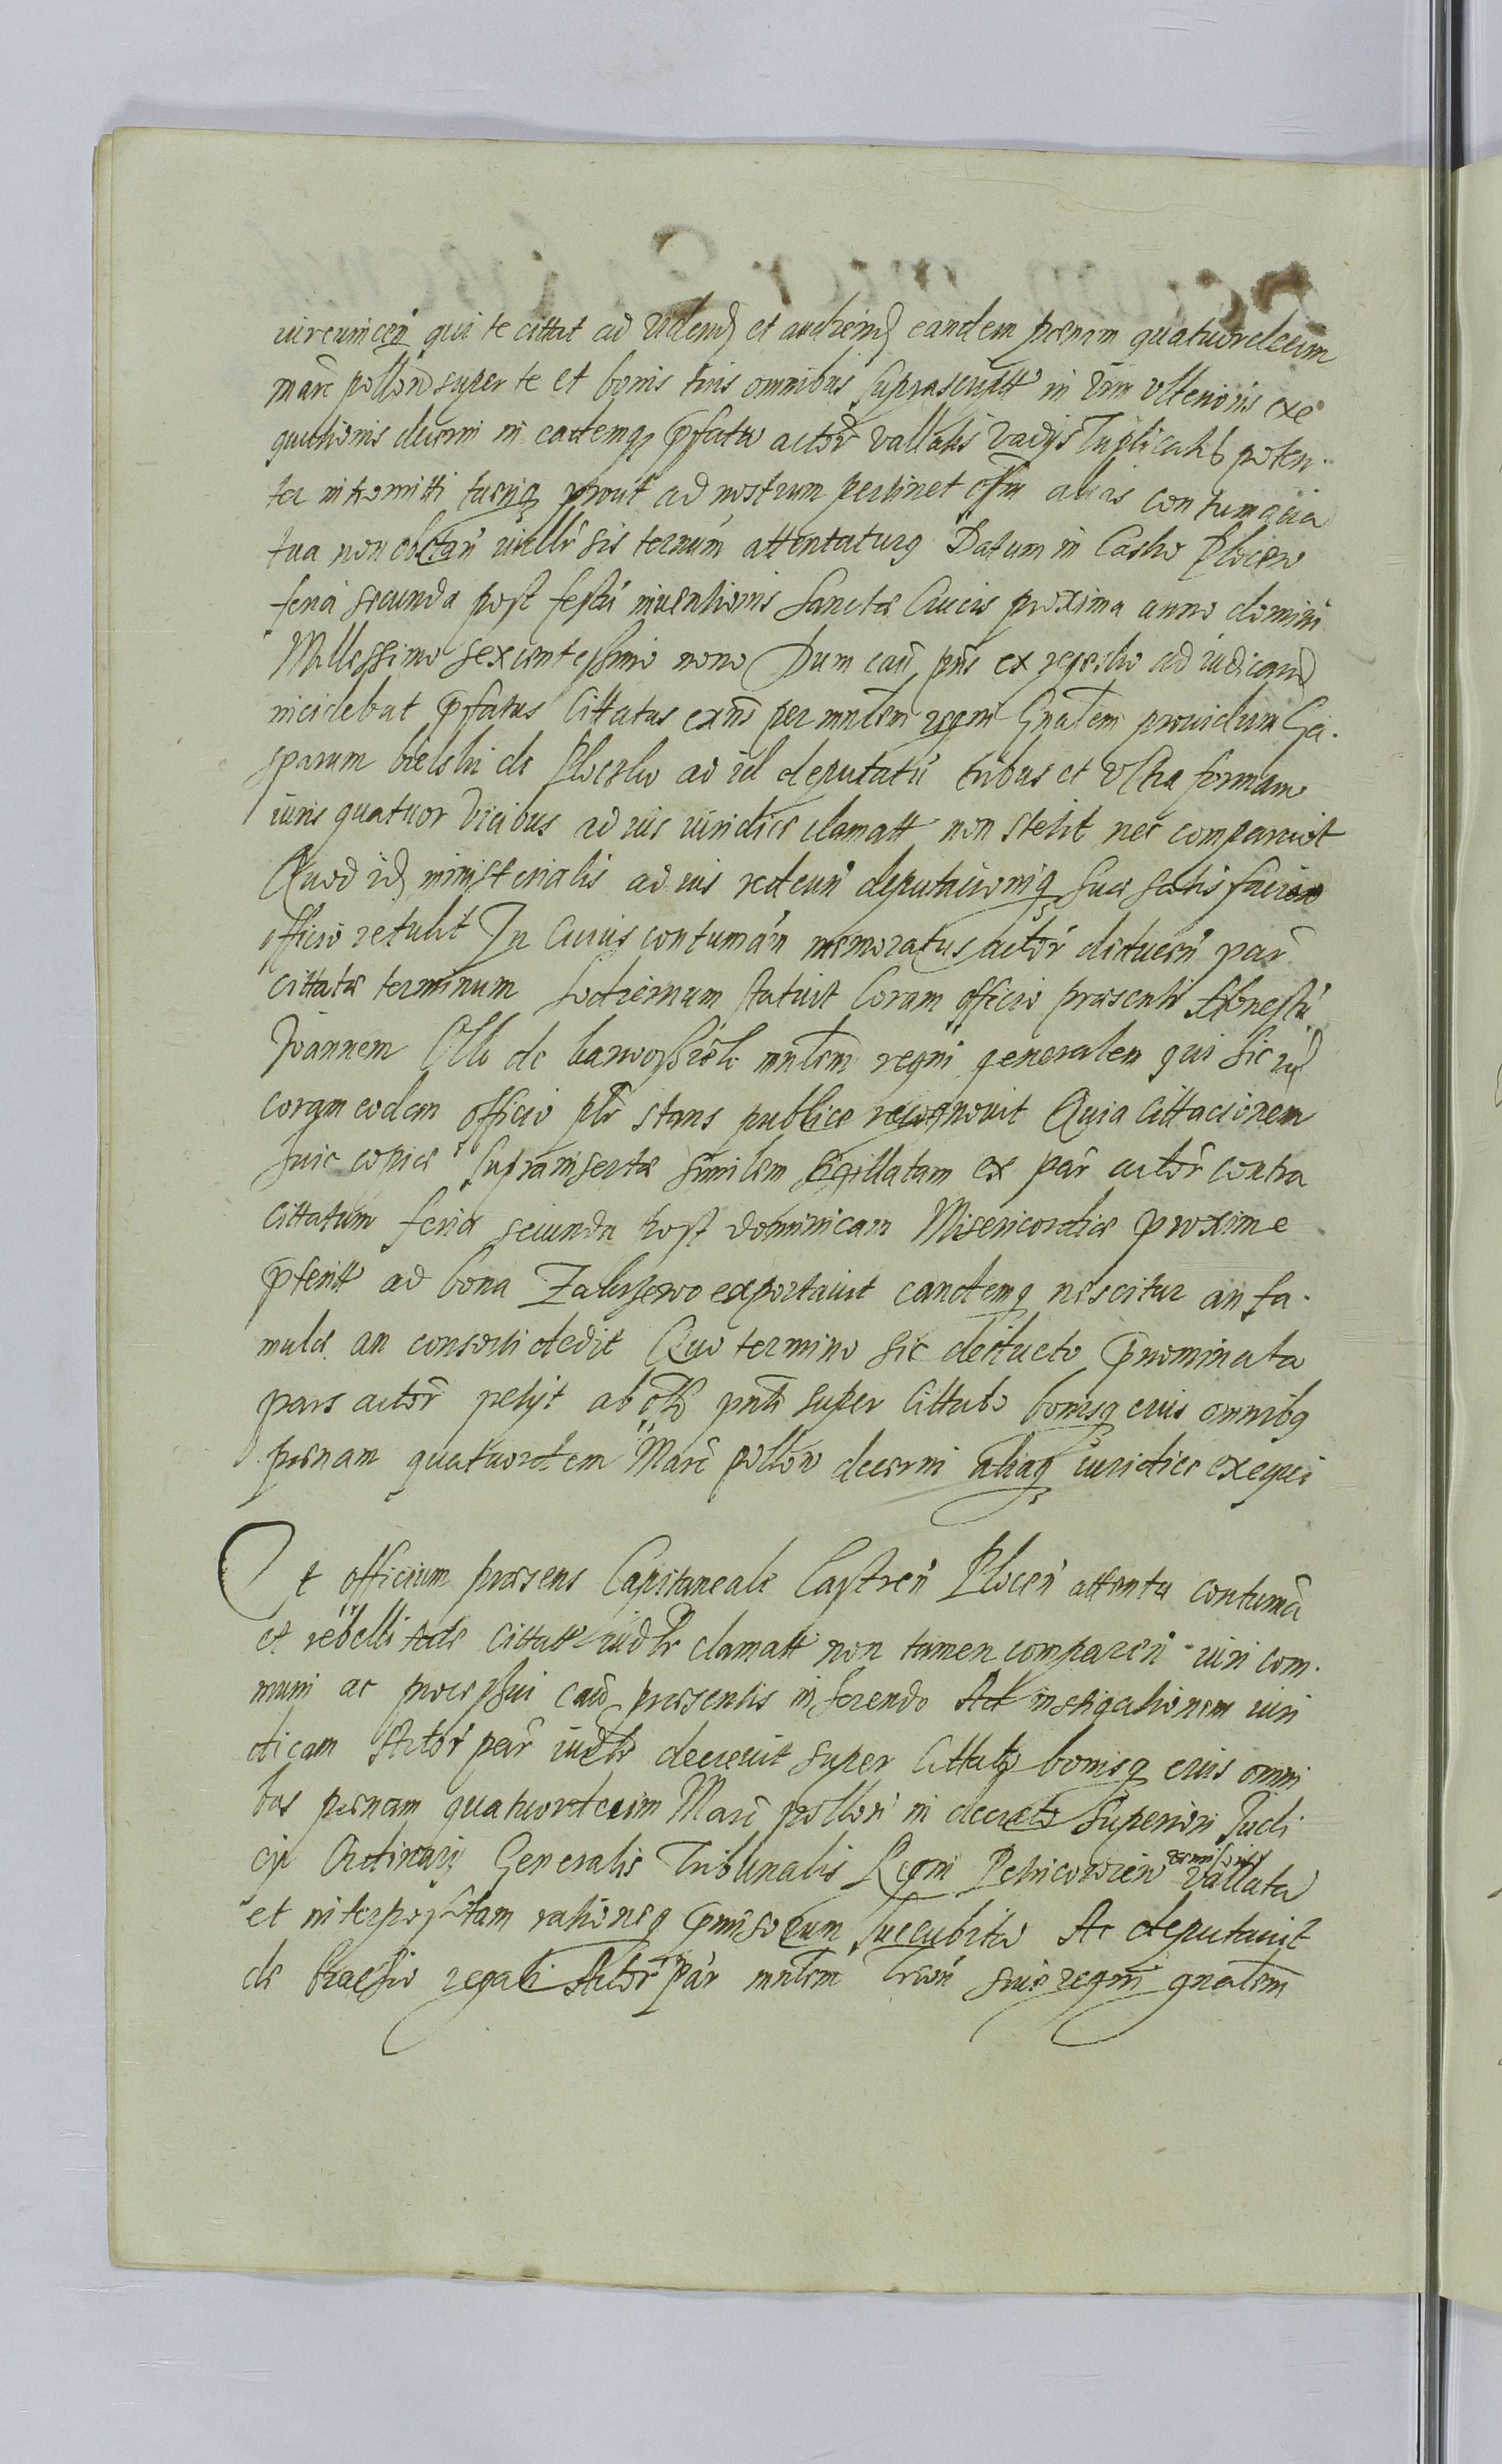 qui te cittat ad videnḍ et audienḍ eandem pœnam quatuordecim
marc̃ pollon̄ super te et bonis tuis omnibus suprascriptt in vim ulterioris exe
qutionis decerni in eademq pfatu actor̃ vallatis vadijs Triplicatis poten.
ter intromitti tueriq prout ad nostrum pertinet offm alias contumacia
tua non obstan̄ sis termin attentaturq Datum in Castro Plocen
feria secunda post festũ inventionis Sanctæ Crucis proxima anno domini
Millessimo sexcentessimo nono Dum caũ pñs ex regestro ad iudicanḍ
incidebat pfatus Cittatus exñs per mnlem regni Gnalem providum Ga.
sparum bielski de Ploczko ad id deputatũ tribus et ultra formam
iuris quatuor vicibus ad ius iuridice clamatt non stetit nec comparuit
Quod idḍ ministerialis ad ius redeun̄ deputacioniq suæ satisfacien
officio retulit In Cuius contumãn memoratus actor̃ deducen̄ par̃
cittatæ terminum hodiernum statuit Coram officio præsenti Honestũ
Joannem de mnlem regni generalem qui hic iḍ
coram eodem officio plr stans publice recognovit Quia cittacionem
huic copiæ suprainsertæ similem sigillatam ex par̃ actor̃ contra
cittatum feria secunda post dominicam Misericordiæ proxime
pteritt ad bona Zaluszewo exportavit eandemq nescitur an fa.
mulæ an consorti dedit Quo termino sic deducto pnominata
pars actor̃ petijt ab offo pnti super Cittato bonisq eius omnibq
pœnam quatuordem Marc̃ pollon decerni aliaq iuridice exequi
Et officium præsens Capitaneale Castren̄ Plocen̄ attenta contumã
et rebellitate cittatt iudlr clamatt non tamen comparen̄ iuri com.
muni ac processui caũ præsentis inhærendo Ad instigationem iuri
dicam Actor̃ par̃ iudlr decrevit super Cittato bonisq eius omni
bus pœnam quatuordecim Marc̃ pollon̄ in decreto Superiori Judi
cij Ordinarij Generalis Tribunalis Regni Petricovien vallata
et interpositam rationeq pmissorum succubita Ac deputavit
de brachio regali Actor̃ par̃ mnlem suis regni gnalem